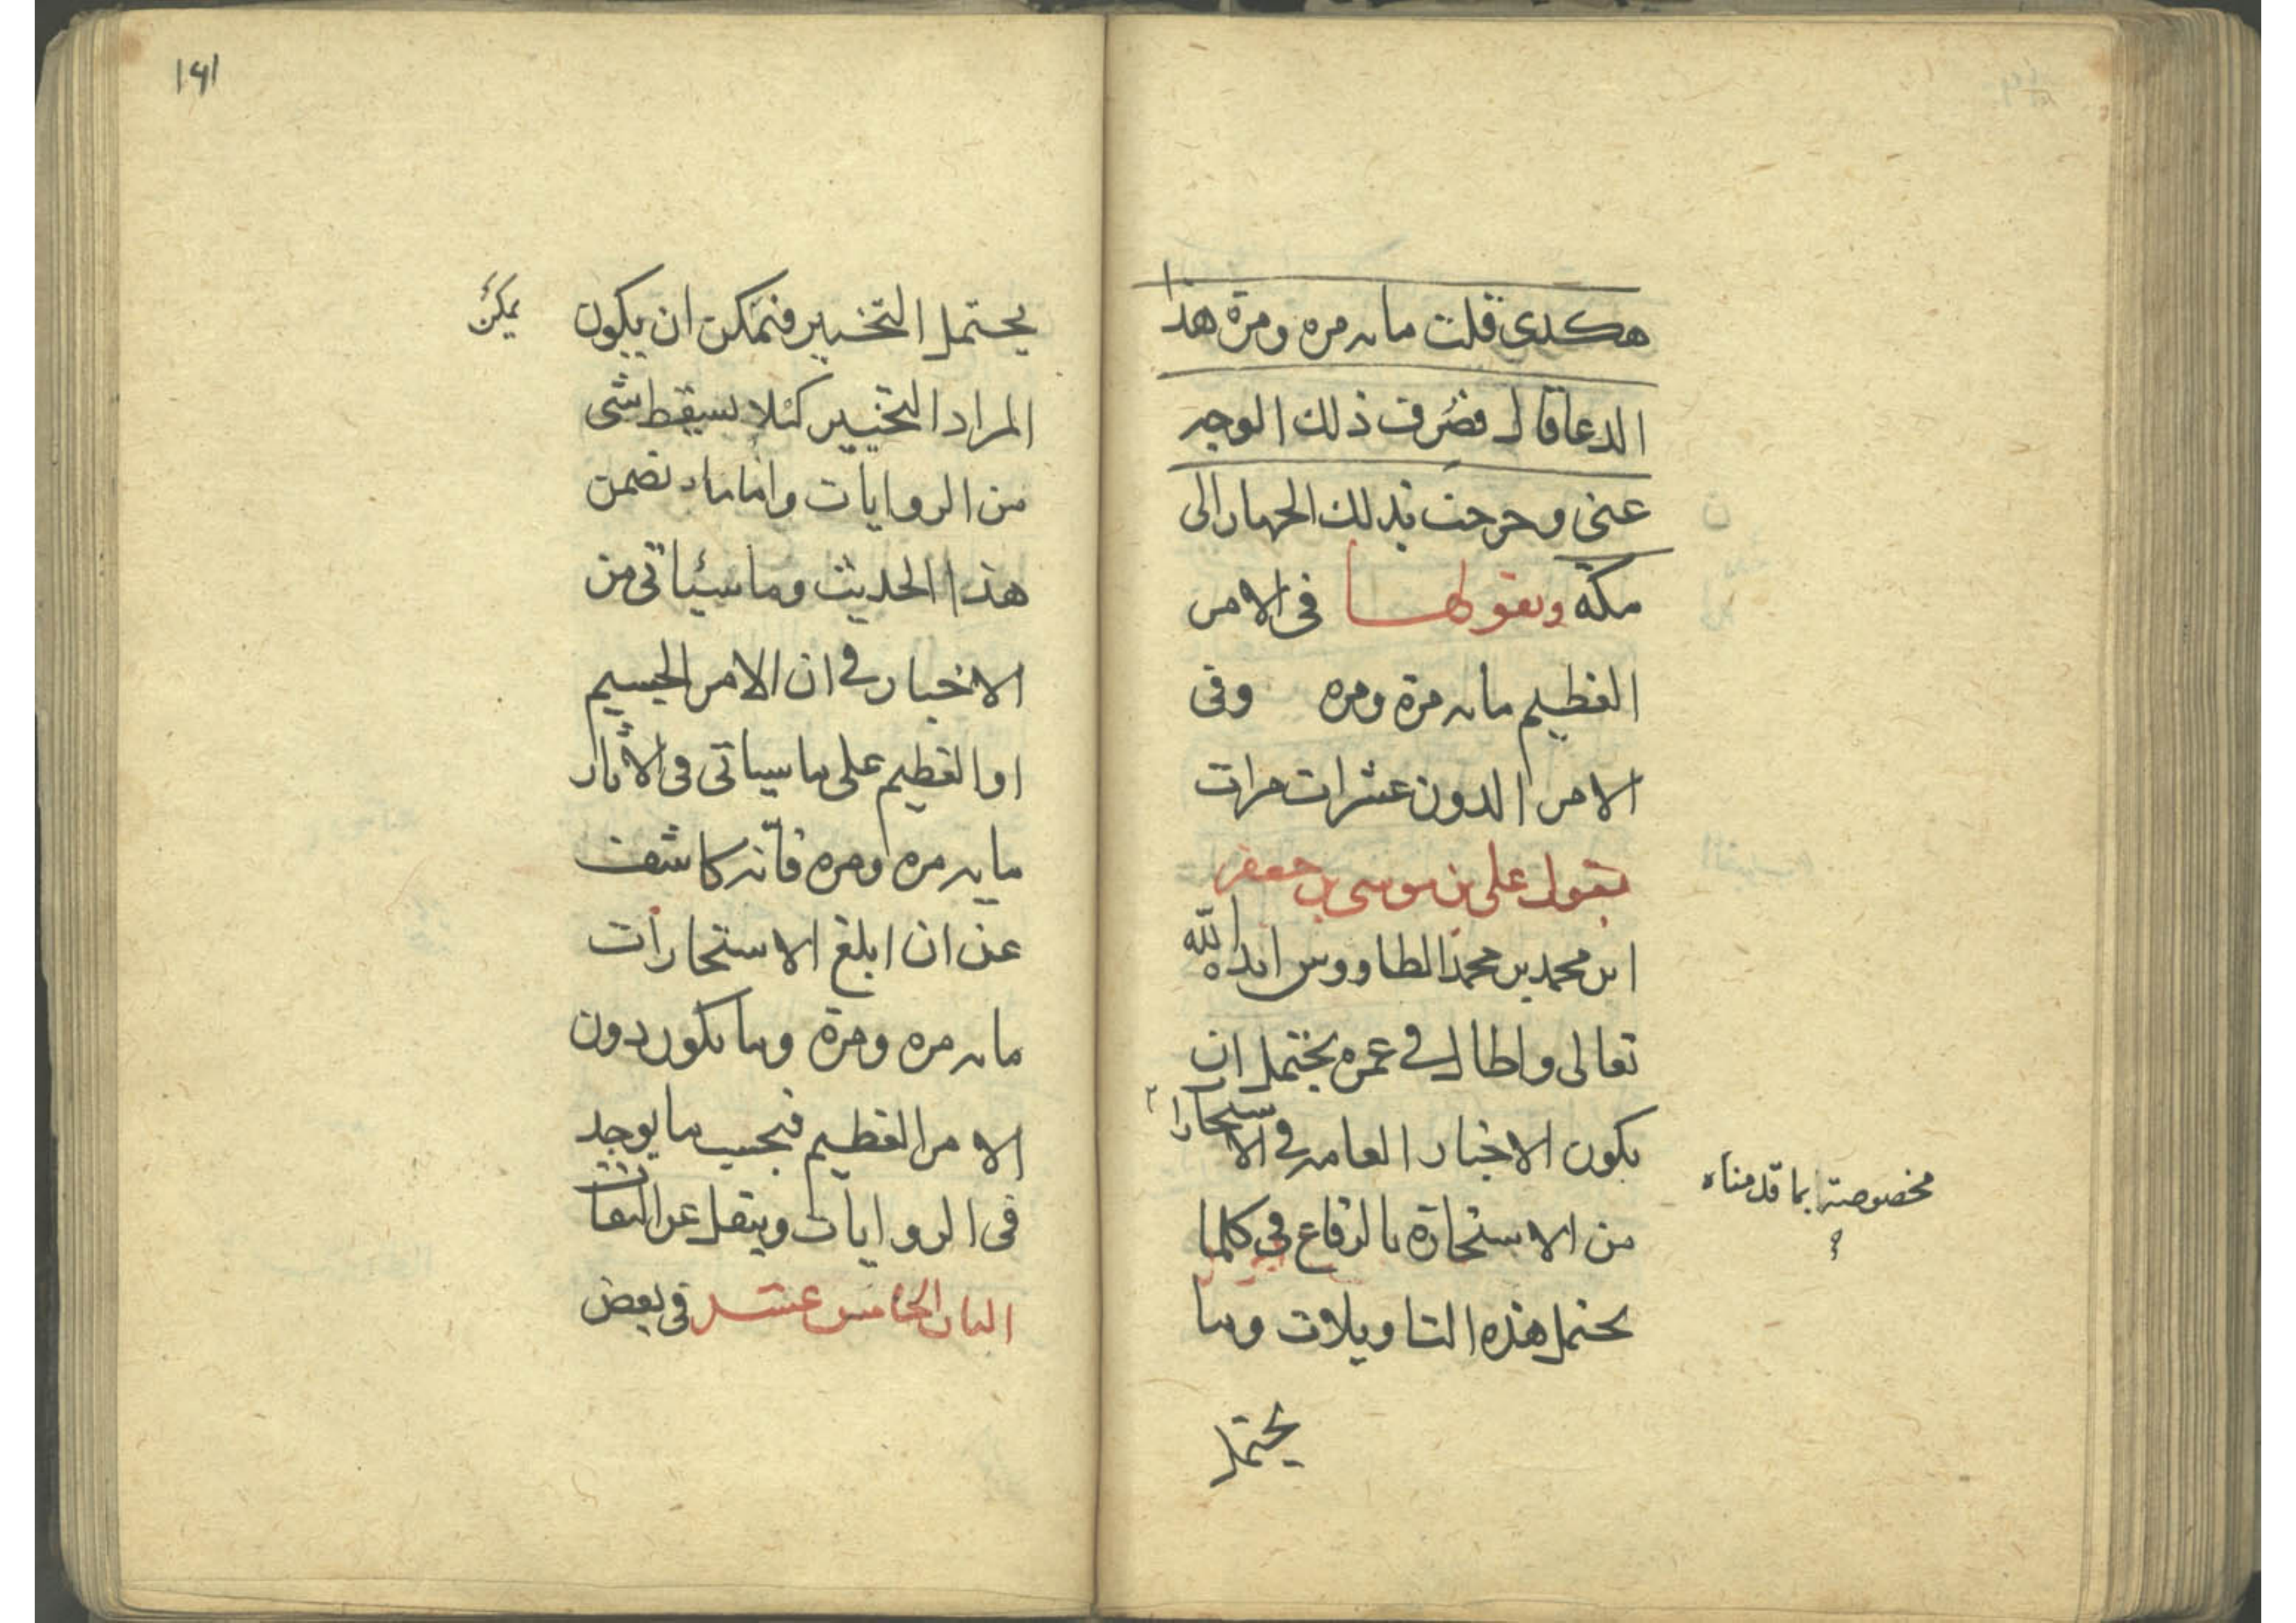 هكدى قلت مايه مره ومرة هذا
الدعا قال فصرف ذلك الوجه
عنى وخرجت بذلك الجهاز الى
مكة ويقولها فى الامر
العظيم مايه مرة ومره وفى
الامر الدون عشرات مرات
يقول على بن موسى بن جعفر
ابن محمد بن محمد الطاووس ايده الله
تعالى واطال فى عمره يحتمل ان
يكون الاخبار العامه فى الاستخارات
مخصوصة بما قدمناه
من الاستخارة بالرقاع فى كلما
يحتمل هذه التاويلات وما
يحتمل
١٦١
يحتمل التخيير فتمكن ان يكون
يمكن
المراد التخيير لئلا يسقط شى
من الروايات واما ما تضمن
هذا الحديث وما سياتى من
الاخبار فى ان الامر الجسيم
او العظيم على ما سياتى فى الآثار
مايه مره ومره فانه كاشف
عن ان ابلغ الاستخارات
مايه مره ومرة وما يكون دون
الامر العظيم فبحسب ما يوجد
فى الروايات وينقل عن الثقات
الباب الخامس عشر فى بعض